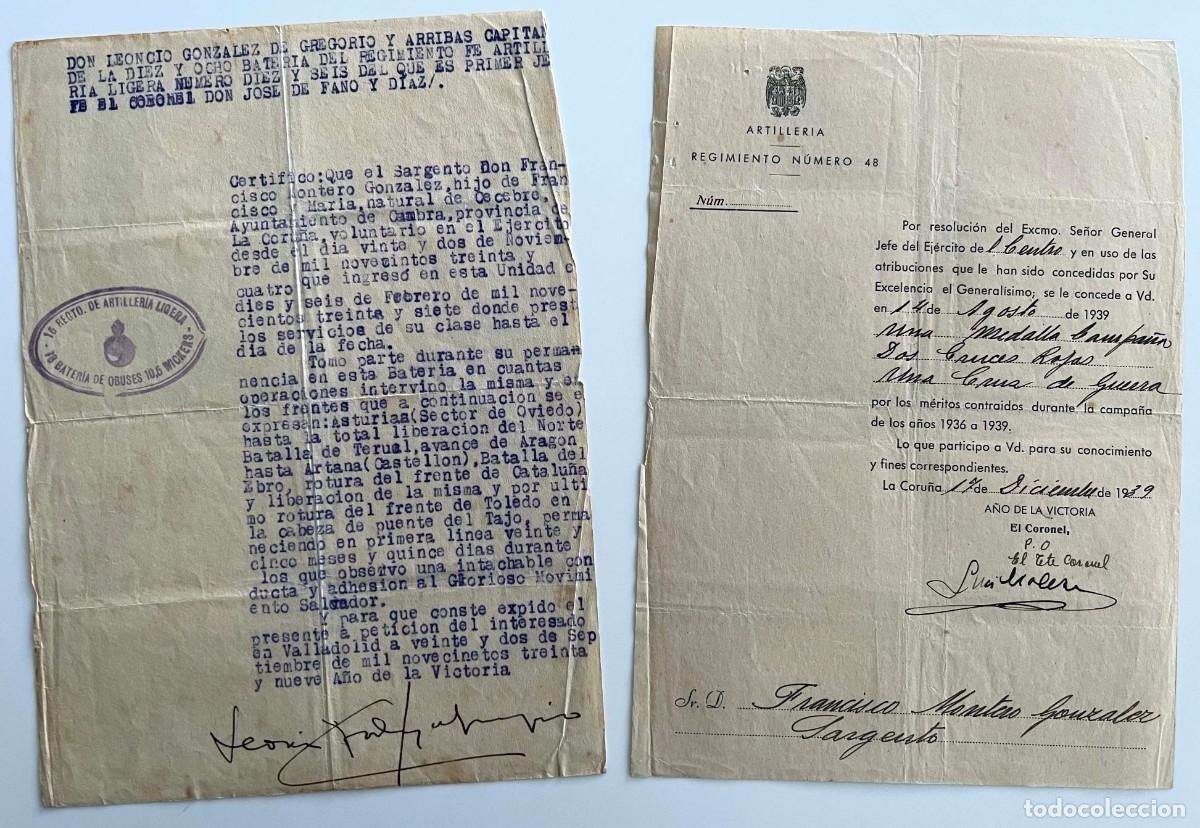 DON LEONCIO GONZALEZ DE GREGORIO Y ARRIBAS CAPITAN
DE LA DIEZ Y OCHO BATERIA DEL REGIMIENTO FE ARTILL
RIA LIGERA NUMERO DIEZ Y SEIS DEL QUE ES PRIMER JE
FE EL CORONEL DON JOSE DE FANO Y DIAZ/.
Certifico:Que el Sargento Don Fran-
cisco Montero Gonzalez,hijo de Fran
cisco y Maria,natural de Cecebre,
Ayuntamiento de Cambra,provincia de
La Coruña,voluntario en el Ejercito
desde el dia veinte y dos de Noviem-
bre de mil novecintos treinta y
cuatro que ingresó en esta Unidad e
dies y seis de Febrero de mil nove-
cientos treinta y siete donde prest
los servicios de su clase hasta el
dia de la fecha.
Tomo parte durante su perma-
nencia en esta Bateria en cuantas
operaciones intervino la misma y en
los frentes que a continuacion se e
expresan:Asturias(Sector de Oviedo)
hasta la total liberacion del Norte
Batalla de Teruel,avance de Aragon
hasta Artana(Castellon),Batalla del
Ebro, rotura del frente de Cataluña
y liberacion de la misma y por ulti
mo rotura del frente de Toledo en
la cabeza de puente del Tajo, perma
neciendo en primera linea veinte y
cinco meses y quince dias durante
los que observo una intachable con
ducta y adhesion al Glorioso Movimi
ento Salvador.
Y para que conste expido el
presente a peticion del interesado
en Valladolid a veinte y dos de Sep
tiembre de mil novecinetos treinta
y nueve Año de la Victoria
16 REGTO. DE ARTILLERIA LIGERA
18 BATERIA DE OBUSES 10,5 WICKERS
ARTILLERIA
REGIMIENTO NÚMERO 48
Núm.
Por resolución del Excmo. Señor General
Jefe del Ejército de l Centro y en uso de las
atribuciones que le han sido concedidas por Su
Excelencia el Generalísimo; se le concede a Vd.
en 14 de Agosto de 1939
Una Medalla Campaña
Dos Cruces Rojas
Una Cruz de Guerra
por los méritos contraidos durante la campaña
de los años 1936 a 1939.
Lo que participo a Vd. para su conocimiento
y fines correspondientes.
La Coruña 17 de Diciembre de 1939
AÑO DE LA VICTORIA
El Coronel,
P. O
El Tte Coronel
Sr. D. Francisco Montero Gonzalez
Sargento
todocoleccion